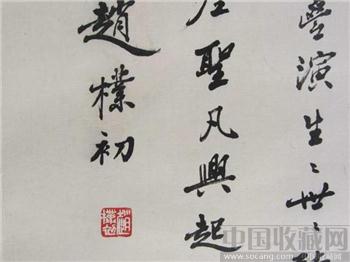 演生〻世〻
聖凡興起
趙樸初
趙樸初
中国收藏网
www.socang.com